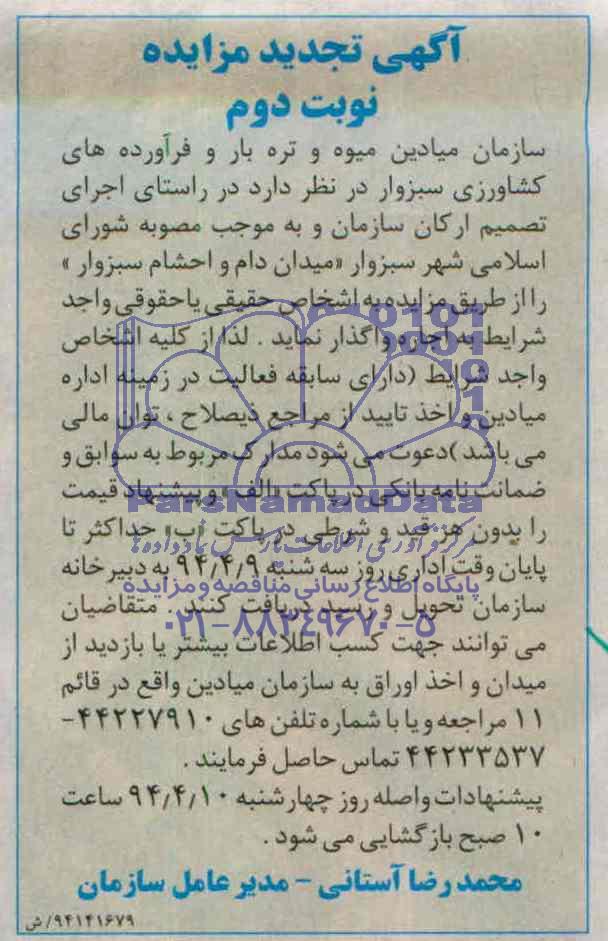 آگهی تجدید مزایده
نوبت دوم
سازمان میادین میوه و تره بار و فرآورده های
کشاورزی سبزوار در نظر دارد در راستای اجرای
تصمیم ارکان سازمان و به موجب مصوبه شورای
اسلامی شهر سبزوار «میدان دام و احشام سبزوار »
را از طریق مزایده به اشخاص حقیقی یا حقوقی واجد
شرایط به اجاره واگذار نماید . لذا از کلیه اشخاص
واجد شرایط (دارای سابقه فعالیت در زمینه اداره
میادین و اخذ تایید از مراجع ذیصلاح ، توان مالی
می باشد )دعوت می شود مدارک مربوط به سوابق و
ضمانت نامه بانکی در پاکت «الف» و پیشنهاد قیمت
ParsNamadData
را بدون هر قید و شرطی در پاکت «ب» حداکثر تا
مرکز فرآوری اطلاعات پارس نماد داده ها
پایان وقت اداری روز سه شنبه ۹۴/۴/۹ به دبیرخانه
پایگاه اطلاع رسانی مناقصه و مزایده
سازمان تحویل و رسید دریافت کنند . متقاضیان
۰۲۱-۸۸۳۴۹۶۷۰-۵
می توانند جهت کسب اطلاعات بیشتر یا بازدید از
میدان و اخذ اوراق به سازمان میادین واقع در قائم
۱۱ مراجعه و یا با شماره تلفن های ۴۴۲۲۷۹۱۰-
۴۴۲۳۳۵۳۷ تماس حاصل فرمایند .
پیشنهادات واصله روز چهارشنبه ۹۴/۴/۱۰ ساعت
۱۰ صبح بازگشایی می شود .
محمدرضا آستانی - مدیر عامل سازمان
۹۴۱۴۱۶۷۹/ش